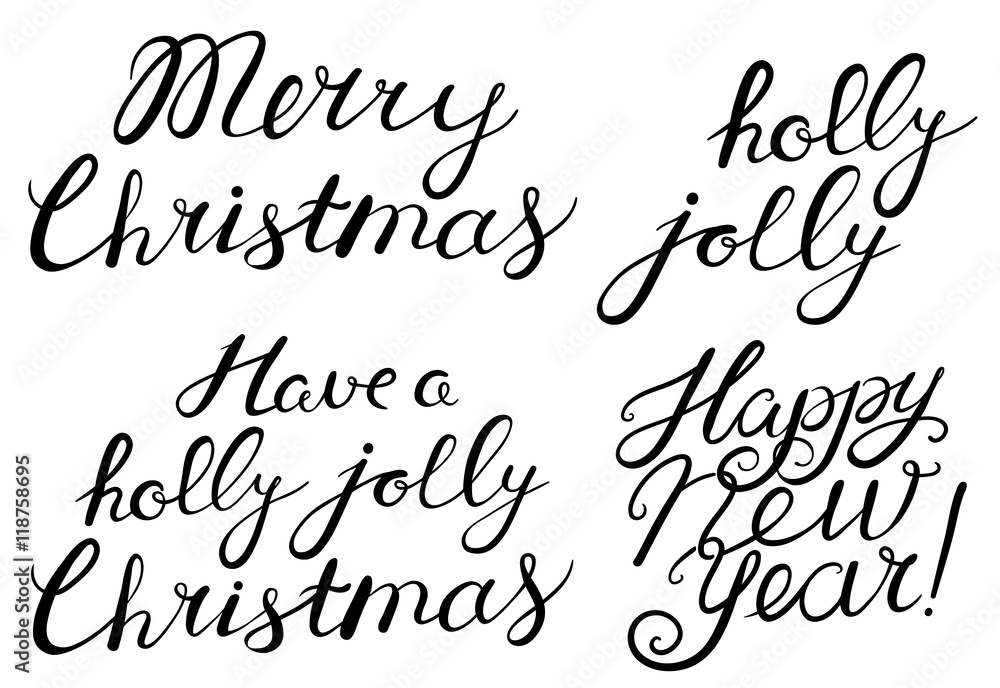 Merry
Christmas
holly
jolly
Have a
holly jolly
Christmas
Happy
New
year!
Adobe Stock | #118758695